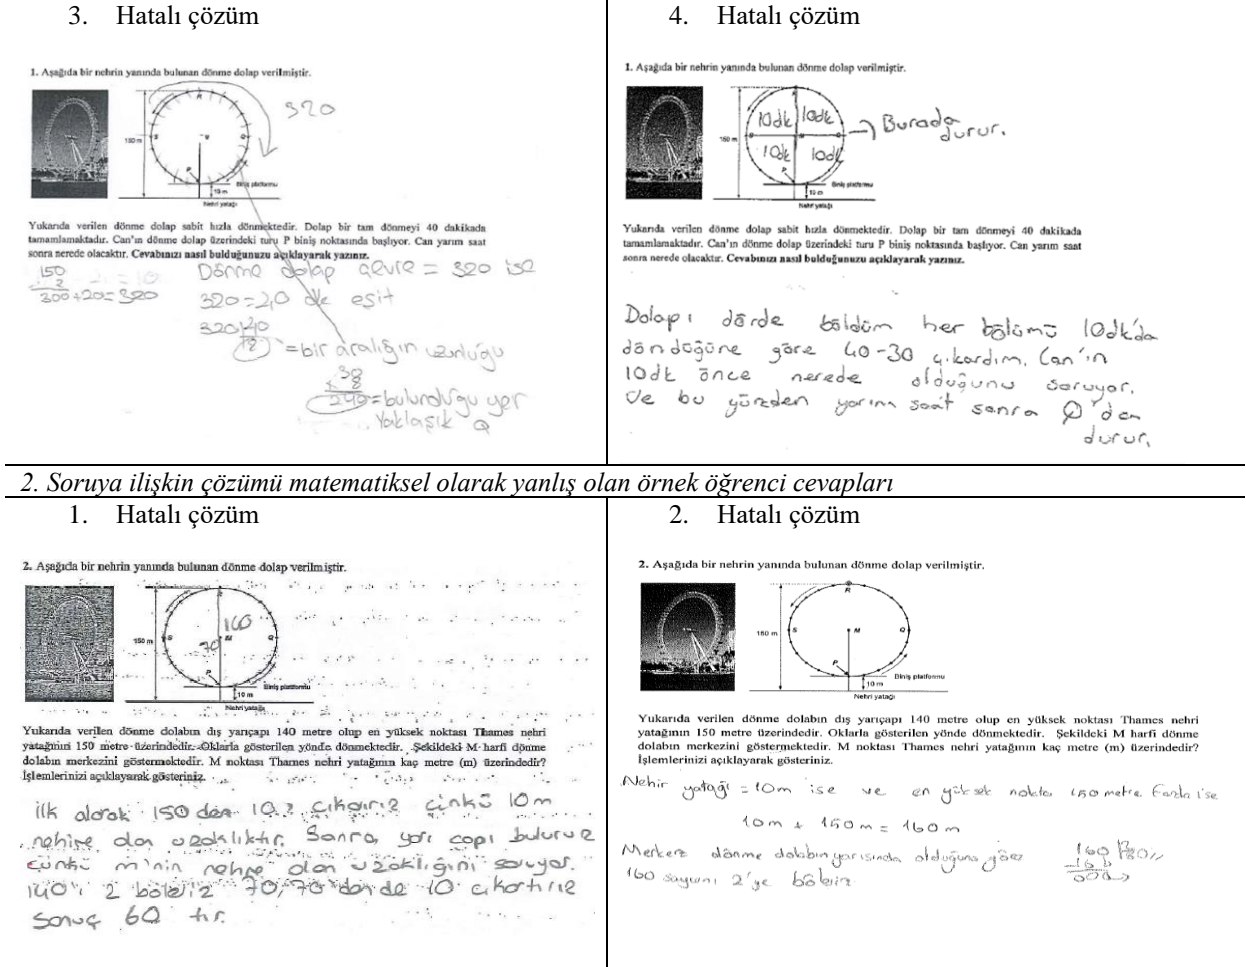 3. Hatalı çözüm
1. Aşağıda bir nehrin yanında bulunan dönme dolap verilmiştir.
320
R
150 m
S
M
Q
P
Biniş platformu
10 m
Nehri yatağı
Yukarıda verilen dönme dolap sabit hızla dönmektedir. Dolap bir tam dönmeyi 40 dakikada
tamamlamaktadır. Can'ın dönme dolap üzerindeki turu P biniş noktasında başlıyor. Can yarım saat
sonra nerede olacaktır. Cevabınızı nasıl bulduğunuzu açıklayarak yazınız.
150
2
300+20=320
Dönme dolap çevre = 320 ise
320=40 dk eşit
320 40
8 =bir aralığın uzunluğu
30
x 8
240=bulunduğu yer
Yaklaşık Q
4. Hatalı çözüm
1. Aşağıda bir nehrin yanında bulunan dönme dolap verilmiştir.
150 m
10dk 10dk
10dk 10dk
Burada
durur.
P
Biniş platformu
10 m
Nehri yatağı
Yukarıda verilen dönme dolap sabit hızla dönmektedir. Dolap bir tam dönmeyi 40 dakikada
tamamlamaktadır. Can'ın dönme dolap üzerindeki turu P biniş noktasında başlıyor. Can yarım saat
sonra nerede olacaktır. Cevabınızı nasıl bulduğunuzu açıklayarak yazınız.
Dolapı dörde böldüm her bölümü 10dk'da
döndüğüne göre 40-30 çıkardım. Can'ın
10dk önce nerede olduğunu soruyor.
Ve bu yüzden yarım saat sonra Q'dan
durur.
2. Soruya ilişkin çözümü matematiksel olarak yanlış olan örnek öğrenci cevapları
1. Hatalı çözüm
2. Aşağıda bir nehrin yanında bulunan dönme dolap verilmiştir.
R
160
150 m
S
70
M
Q
P
Biniş platformu
10 m
Nehri yatağı
Yukarıda verilen dönme dolabın dış yarıçapı 140 metre olup en yüksek noktası Thames nehri
yatağının 150 metre üzerindedir. Oklarla gösterilen yönde dönmektedir. Şekildeki M harfi dönme
dolabın merkezini göstermektedir. M noktası Thames nehri yatağının kaç metre (m) üzerindedir?
İşlemlerinizi açıklayarak gösteriniz.
ilk olarak 150 den 10 çıkarırız çünkü 10m
nehire olan uzaklıktır. Sonra yarı çapı buluruz
çünkü m'nin nehre olan uzaklığını soruyor.
140'ı 2 böleriz 70, 70'den de 10 çıkartırız
Sonuç 60 tır.
2. Hatalı çözüm
2. Aşağıda bir nehrin yanında bulunan dönme dolap verilmiştir.
R
150 m
S
M
Q
P
Biniş platformu
10 m
Nehri yatağı
Yukarıda verilen dönme dolabın dış yarıçapı 140 metre olup en yüksek noktası Thames nehri
yatağının 150 metre üzerindedir. Oklarla gösterilen yönde dönmektedir. Şekildeki M harfi dönme
dolabın merkezini göstermektedir. M noktası Thames nehri yatağının kaç metre (m) üzerindedir?
İşlemlerinizi açıklayarak gösteriniz.
Nehir yatağı = 10m ise ve en yüksek nokta 150 metre fazla ise
10m + 150m = 160m
Merkez dönme dolabın yarısında olduğuna göre
160 sayısını 2'ye böleriz
160 2
80